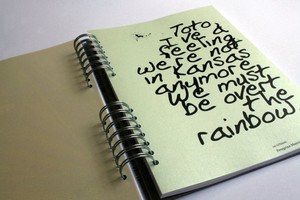 Toto
I've a
feeling
we're not
in Kansas
anymore
We must
be over
the
rainbow